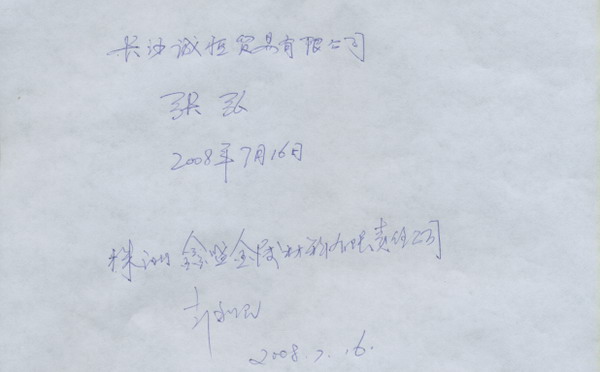 长沙诚恒贸易有限公司
张
2008年7月16日
株洲鑫坚金属材料有限责任公司
2008.7.16.